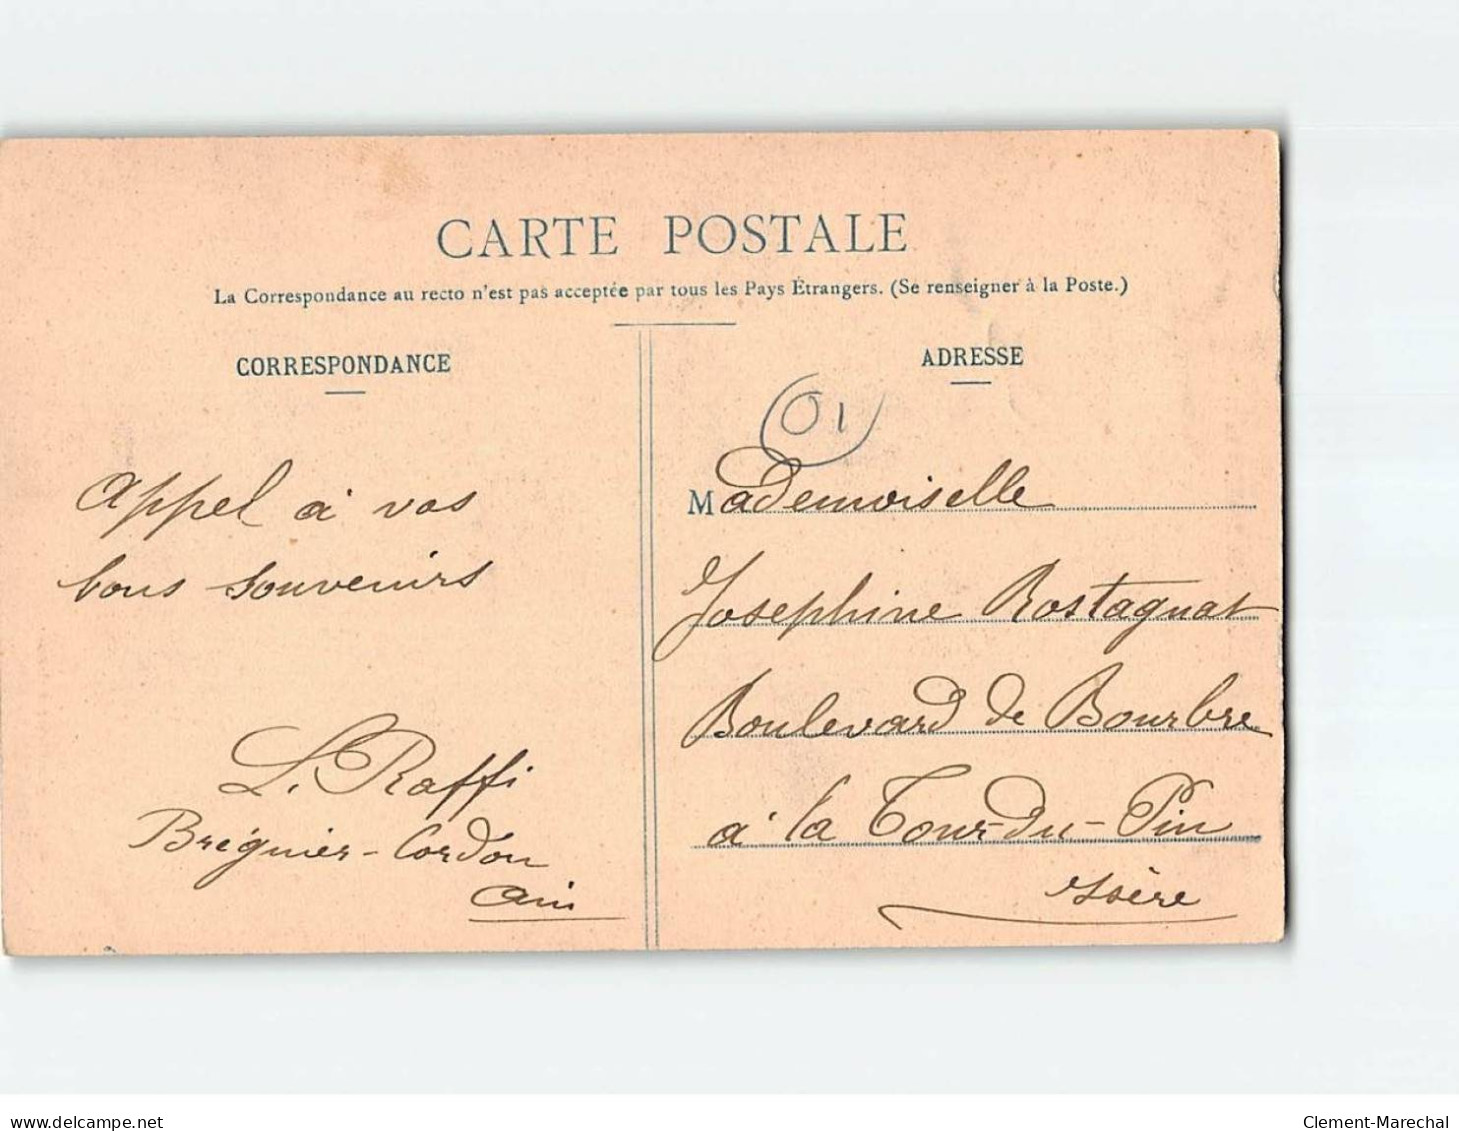 CARTE POSTALE
La Correspondance au recto n'est pas acceptée par tous les Pays Étrangers. (Se renseigner à la Poste.)
CORRESPONDANCE
Appel à vos
bons souvenirs
L. Raffi
Brégnier-Cordon
Ain
ADRESSE
01
Mademoiselle
Josephine Rostagnat
Boulevard de Bourbre
à la Tour-du-Pin
Isère
delcampe.net
Clement-Marechal